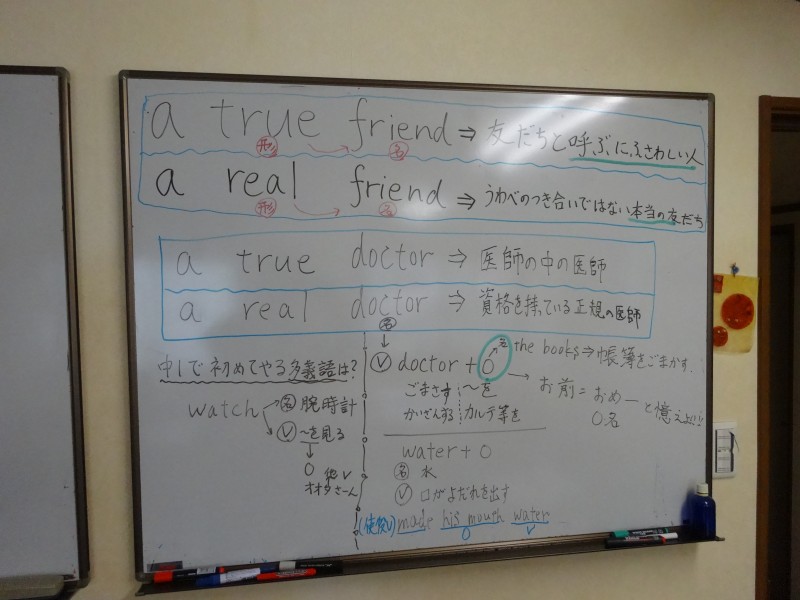 a true friend ⇒ 友だちと呼ぶにふさわしい人
形 名
a real friend ⇒ うわべのつき合いではない本当の友だち
形 名
a true doctor ⇒ 医師の中の医師
a real doctor ⇒ 資格を持っている正規の医師
名
中1で初めてやる多義語は?
watch 名 腕時計
V ~を見る
O 他V
オオタさーん
V doctor + O 名 the books ⇒ 帳簿をごまかす.
ごまさす ~を
かいざんする カルテ等を
お前 = おめー と憶えよ!!
O名
water + O
名 水
V 口がよだれを出す
(使役V) made his mouth water
O V